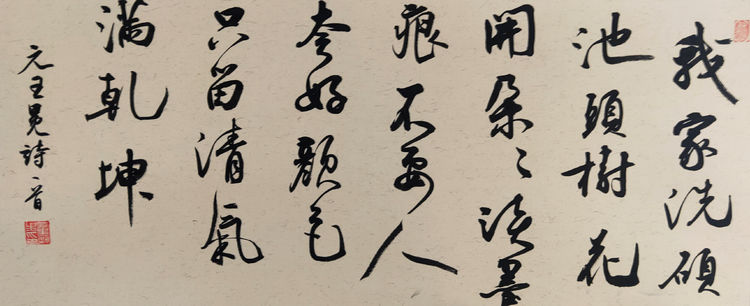 我家洗硯
池頭樹花
開朵〻淡墨
痕不要人
夸好顏色
只留清氣
滿乾坤
元王冕詩一首